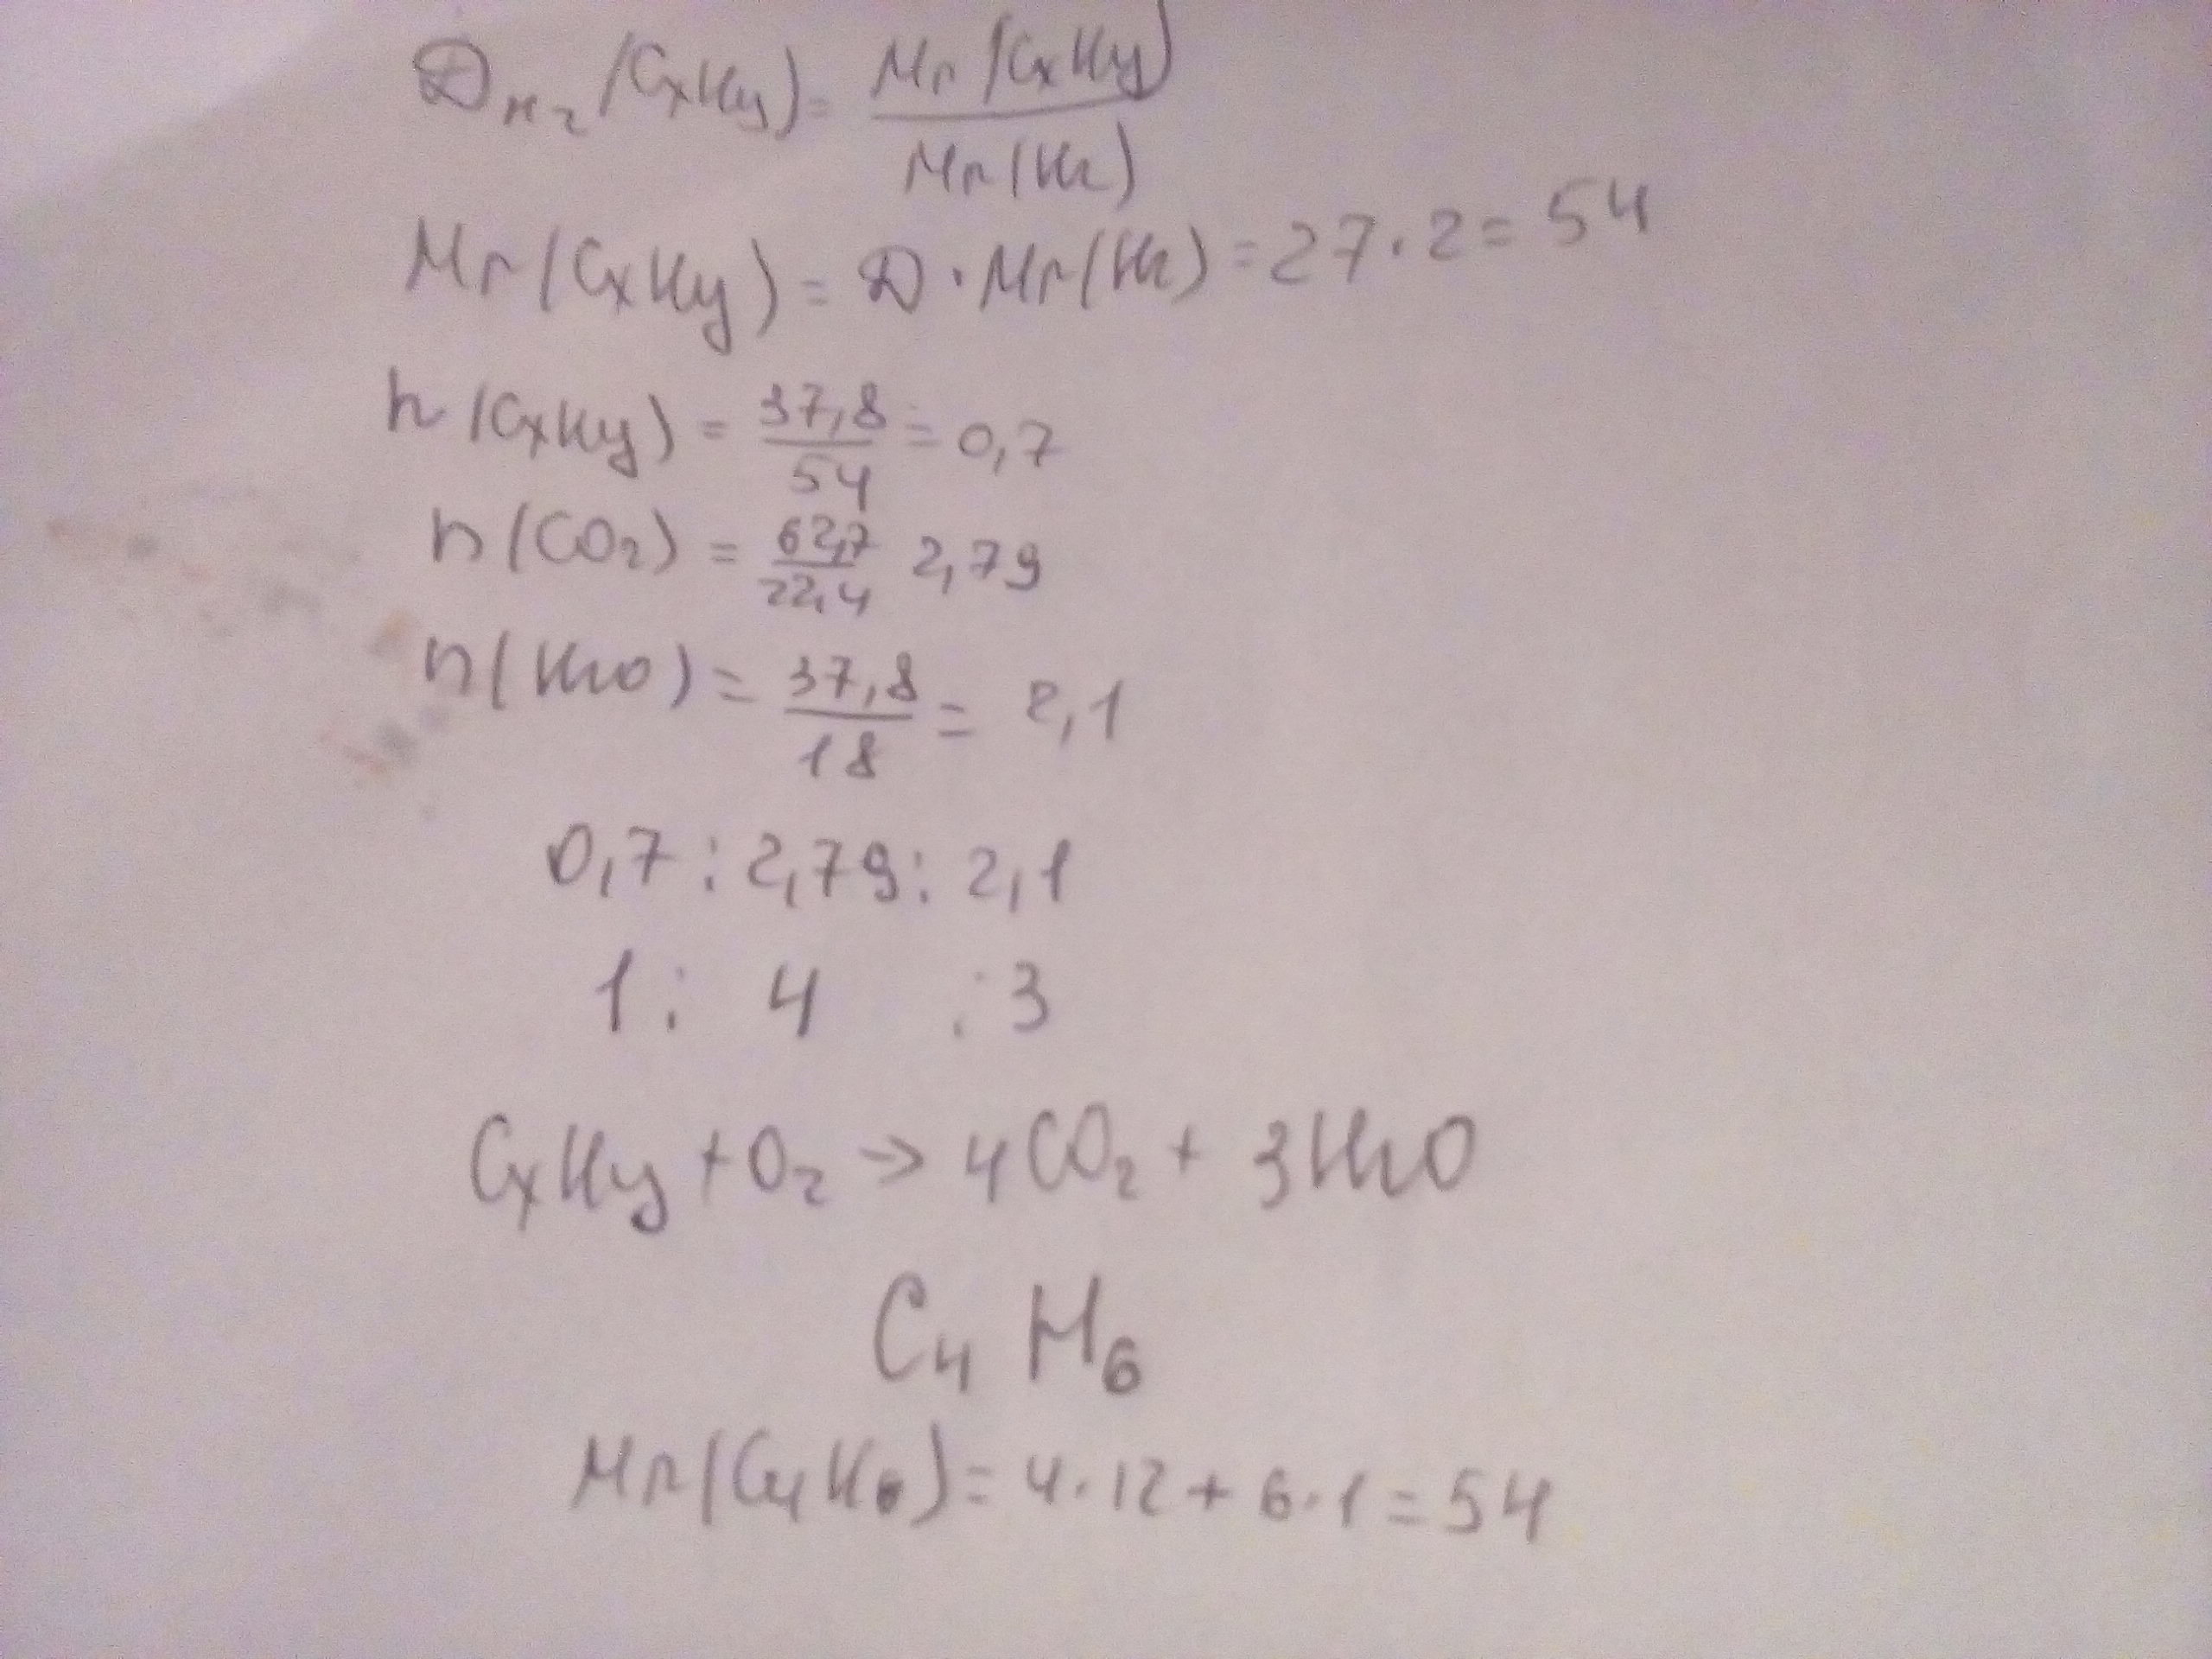 D H₂ (CxHy) = Mr (CxHy) / Mr (H₂)
Mr (CxHy) = D · Mr (H₂) = 27 · 2 = 54
n (CxHy) = 37,8 / 54 = 0,7
n (CO₂) = 62,7 / 22,4 2,79
n (H₂O) = 37,8 / 18 = 2,1
0,7 : 2,79 : 2,1
1 : 4 : 3
CxHy + O₂ → 4CO₂ + 3H₂O
C₄ H₆
Mr (C₄H₆) = 4 · 12 + 6 · 1 = 54